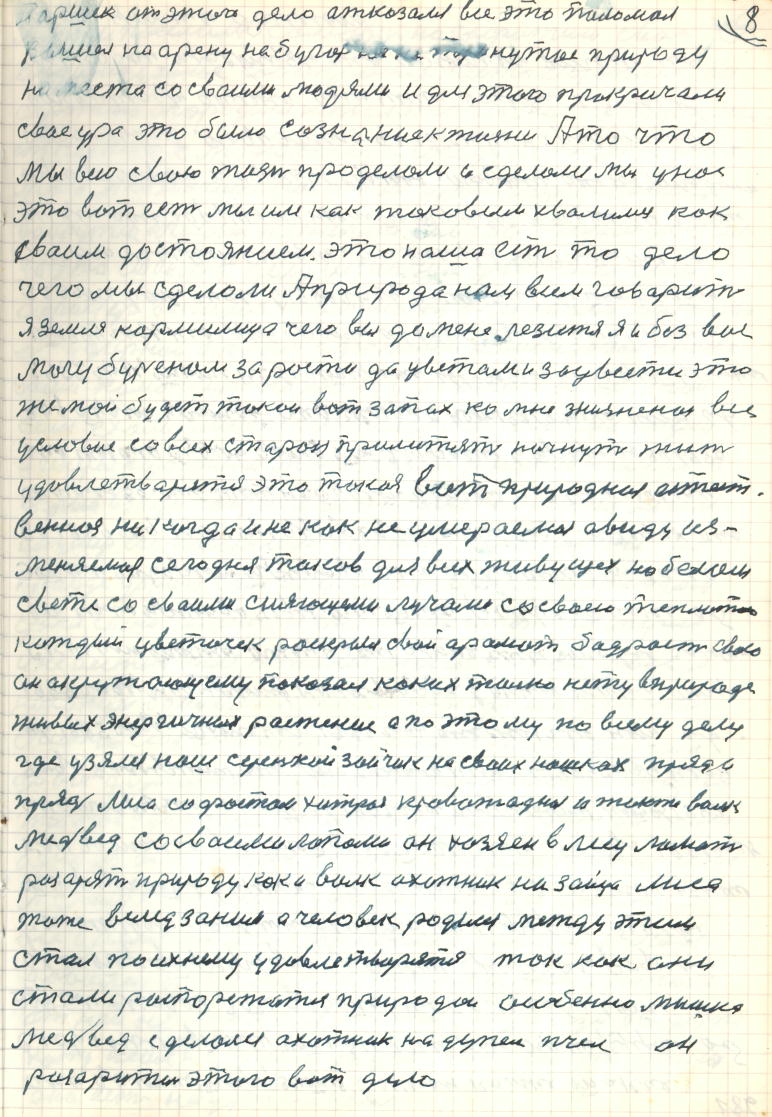 8
Паршек от этого дело отказался все это поломал
вышел на арену на бугор на не тронутое природу
на места со своими людями и для этого прокричали
свае ура это было сознание к жизни А то что
мы всю свою жизн проделали и сделали мы у нас
это вот ест мы им как таковым хвалимся как
сваим достоянием. это наша ест то дело
чего мы сделали А природа нам всем говарит
я земля кормилица чего вы до мене лезитя я и без вас
могу буреном зарости да цветами зацвести это
же мой будет такой вот запах ко мне жизненая вся
условие со всех старон прилитят начнут жит
удовлетварятся это такая вот природная естест.
венноя никогда и не как не умераемая а виду из-
меняемая сегодня таков для всех живущех на белом
свети со сваими сияющеми лучами со своею теплотою
каждый цветочек роскрыл свой аромат бадрост свою
он окружающему показал каких толко нету в природе
живых энергичных растение а по этому по всему делу
где узялся наш серенкой зайчик на своих ношках пряда
пряд Лиса со фостом хитрая кроважадная и тоже волк
медвед со сваими лапами он хазяен в лесу ламат
разарят природу как и волк охотник на зайца лиса
тоже вслед за ним а человек родился между этим
стал по ихнему удовлетварятся так как они
стали роспоряжатся природой особенно мышка
медвед сделался охотник на дупел пчел он
разарител этого вот дело